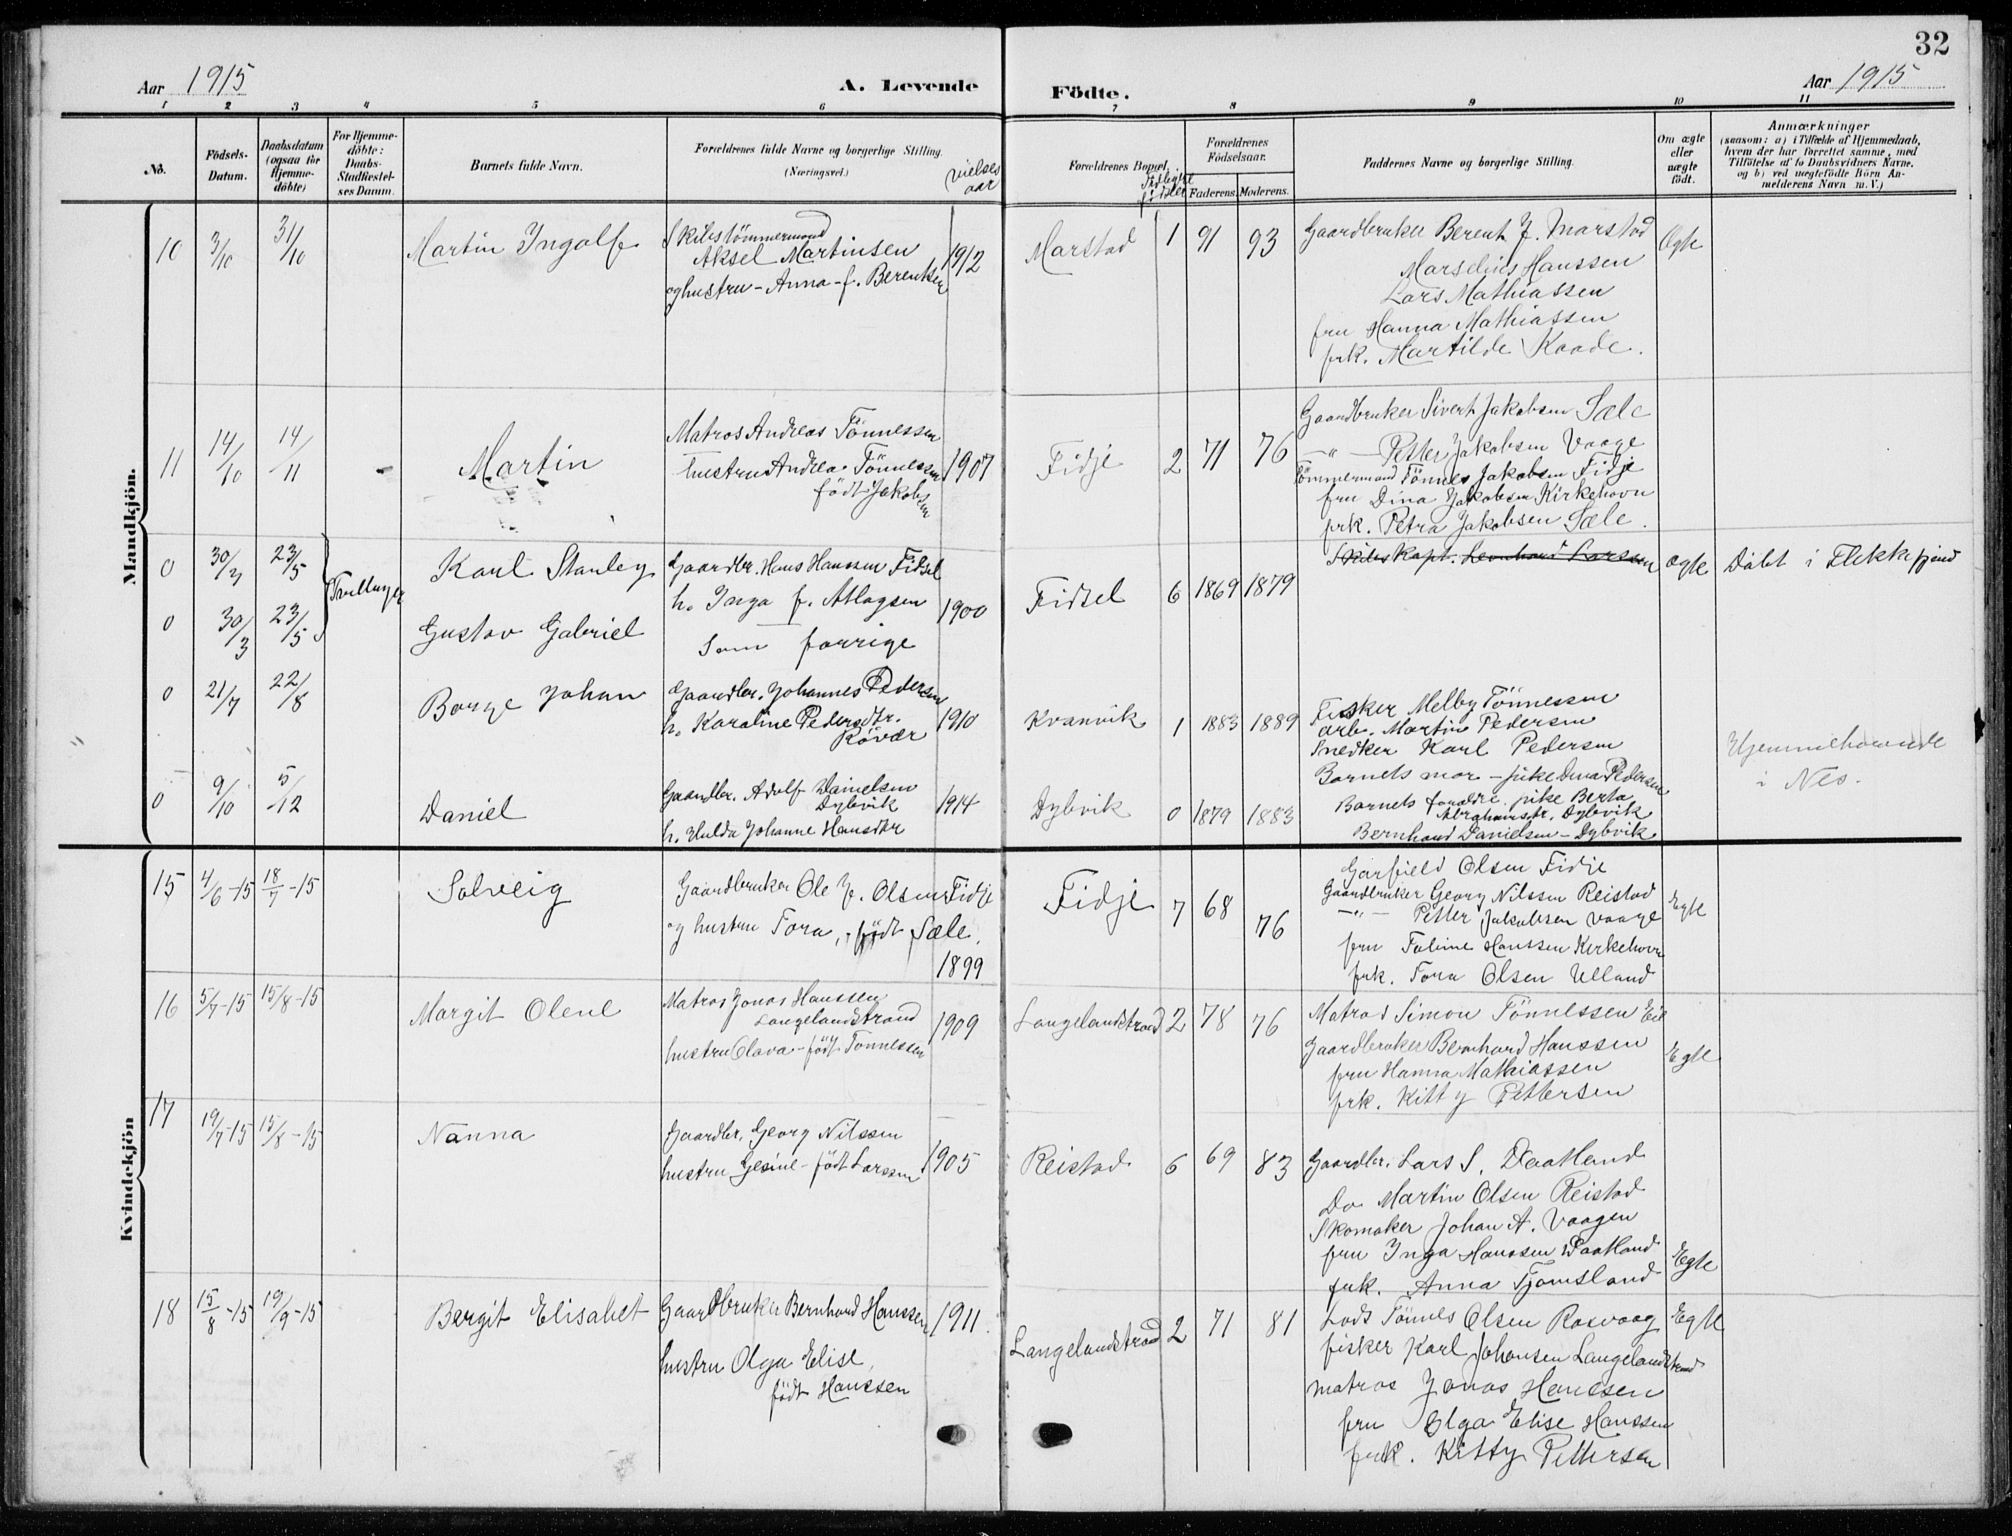 32
Aar 1915
A. Levende
Födte.
Aar 1915
1 2 3 4 5 6 7 8 9 10 11
No.
Födsels-
Datum.
Daabsdatum
(ogsaa for
Hjemme-
döbte)
For Hjemme-
döbte:
Daabs-
Stadfæstel-
ses Datum.
Barnets fulde Navn.
Forældrenes fulde Navne og borgerlige Stilling.
(Næringsvei.)
vielses
aar
Forældrenes Bopæl.
Tidligere
födsler
Forældrenes
Födselsaar.
Faderens. Moderens.
Faddernes Navne og borgerlige Stilling.
Om ægte
eller
uægte
födt.
Anmærkninger
(saasom: a) i Tilfælde af Hjemmedaab,
hvem der har forrettet samme, med
Tilföielse af to Daabsvidners Navne,
og b) ved uægtefödte Börn An-
melderens Navn m. V.)
Mandkjön.
10 3/10 31/10 Martin Ingolf
Skibstömmermand
Aksel Martinsen
og hustru - Anna - f. Berentsen
1912
Marstad 1 91 93
Gaardbruker Berent J. Marstad
Marselius Hanssen
Lars Mathiassen
fru Hanna Mathiassen
frk. Martilde Kaade.
Ægte
11 14/10 14/11 Martin
Matros Andreas Tönnessen
hustru Andrea Tönnessen
födt Jakobsen
1907
Fidje 2 71 76
Gaardbruker Sivert Jakobsen Sæle
-"- Petter Jakobsen Vaage
Tömmermand Tönnes Jakobsen Fidje
fru Dina Jakobsen Kirkehavn
frk. Petra Jakobsen Sæle.
0 30/3 23/5 Tvillinger Karl Stanley
Gaardbr. Hans Hanssen Fidsel
h. Inga f. Atlagsen
1900
Fidsel 6 1869 1879
Skibskapt. Leonhard Larsen
Ægte
Döbt i Flekkefjord
0 30/3 23/5 Gustav Gabriel
Som forrige
0 21/7 22/8 Borge Johan
Gaardbr. Johannes Pedersen
h. Karoline Pedersdtr.
Rövær
1910
Kvanvik 1 1883 1889
Fisker Melby Tönnessen
arb. Martin Pedersen
Snedker Karl Pedersen
Barnets mor - pike Dina Pedersen
Hjemmehörende
i Nes.
0 9/10 5/12 Daniel
Gaardbr. Adolf Danielsen
Dybvik
h. Hulda Johanne Hansdtr
1914
Dybvik 0 1879 1883
Barnets forældre. pike Berta
Abrahamsdtr. Dybvik
Bernhard Danielsen - Dybvik
Kvindekjön
15 4/6-15 18/7-15 Solveig
Gaardbruker Ole J. Olsen Fidje
og hustru Tora, födt Sæle.
1899
Fidje 7 68 76
Garfield Olsen Fidje
Gaardbruker Georg Nilssen Reistad
-"- Petter Jakobsen Vaage
fru Taline Hanssen Kirkehavn
frk. Tora Olsen Ulland
Egte
16 5/7-15 15/8-15 Margit Olene
Matros Jonas Hanssen
Langelandstrand
hustru Olava - födt Tönnessen
1909
Langelandstrand 2 78 76
Matros Simon Tönnessen Eie
Gaardbruker Bernhard Hanssen
fru Hanna Mathiassen
frk. Kitty Pettersen
Egte
17 19/7-15 15/8-15 Nanna
Gaardbr. Georg Nilssen
hustru Gesine - födt Larssen
1905
Reistad 6 69 83
Gaardbr. Lars S. Daatland
Do Martin Olsen Reistad
Skomaker Johan A. Vaagen
fru Inga Hanssen Daatland
frk. Anna Tjomsland
Egte
18 15/8-15 19/9-15 Bergit Elisabet
Gaardbruker Bernhard Hanssen
hustru Olga Elise,
födt Hanssen
1911
Langelandstrand 2 71 81
Lods Tönnes Olsen Rosvaag
fisker Karl Johansen Langelandstrand
matros Jonas Hanssen
fru Olga Elise Hanssen
frk. Kitty Pettersen
Egte